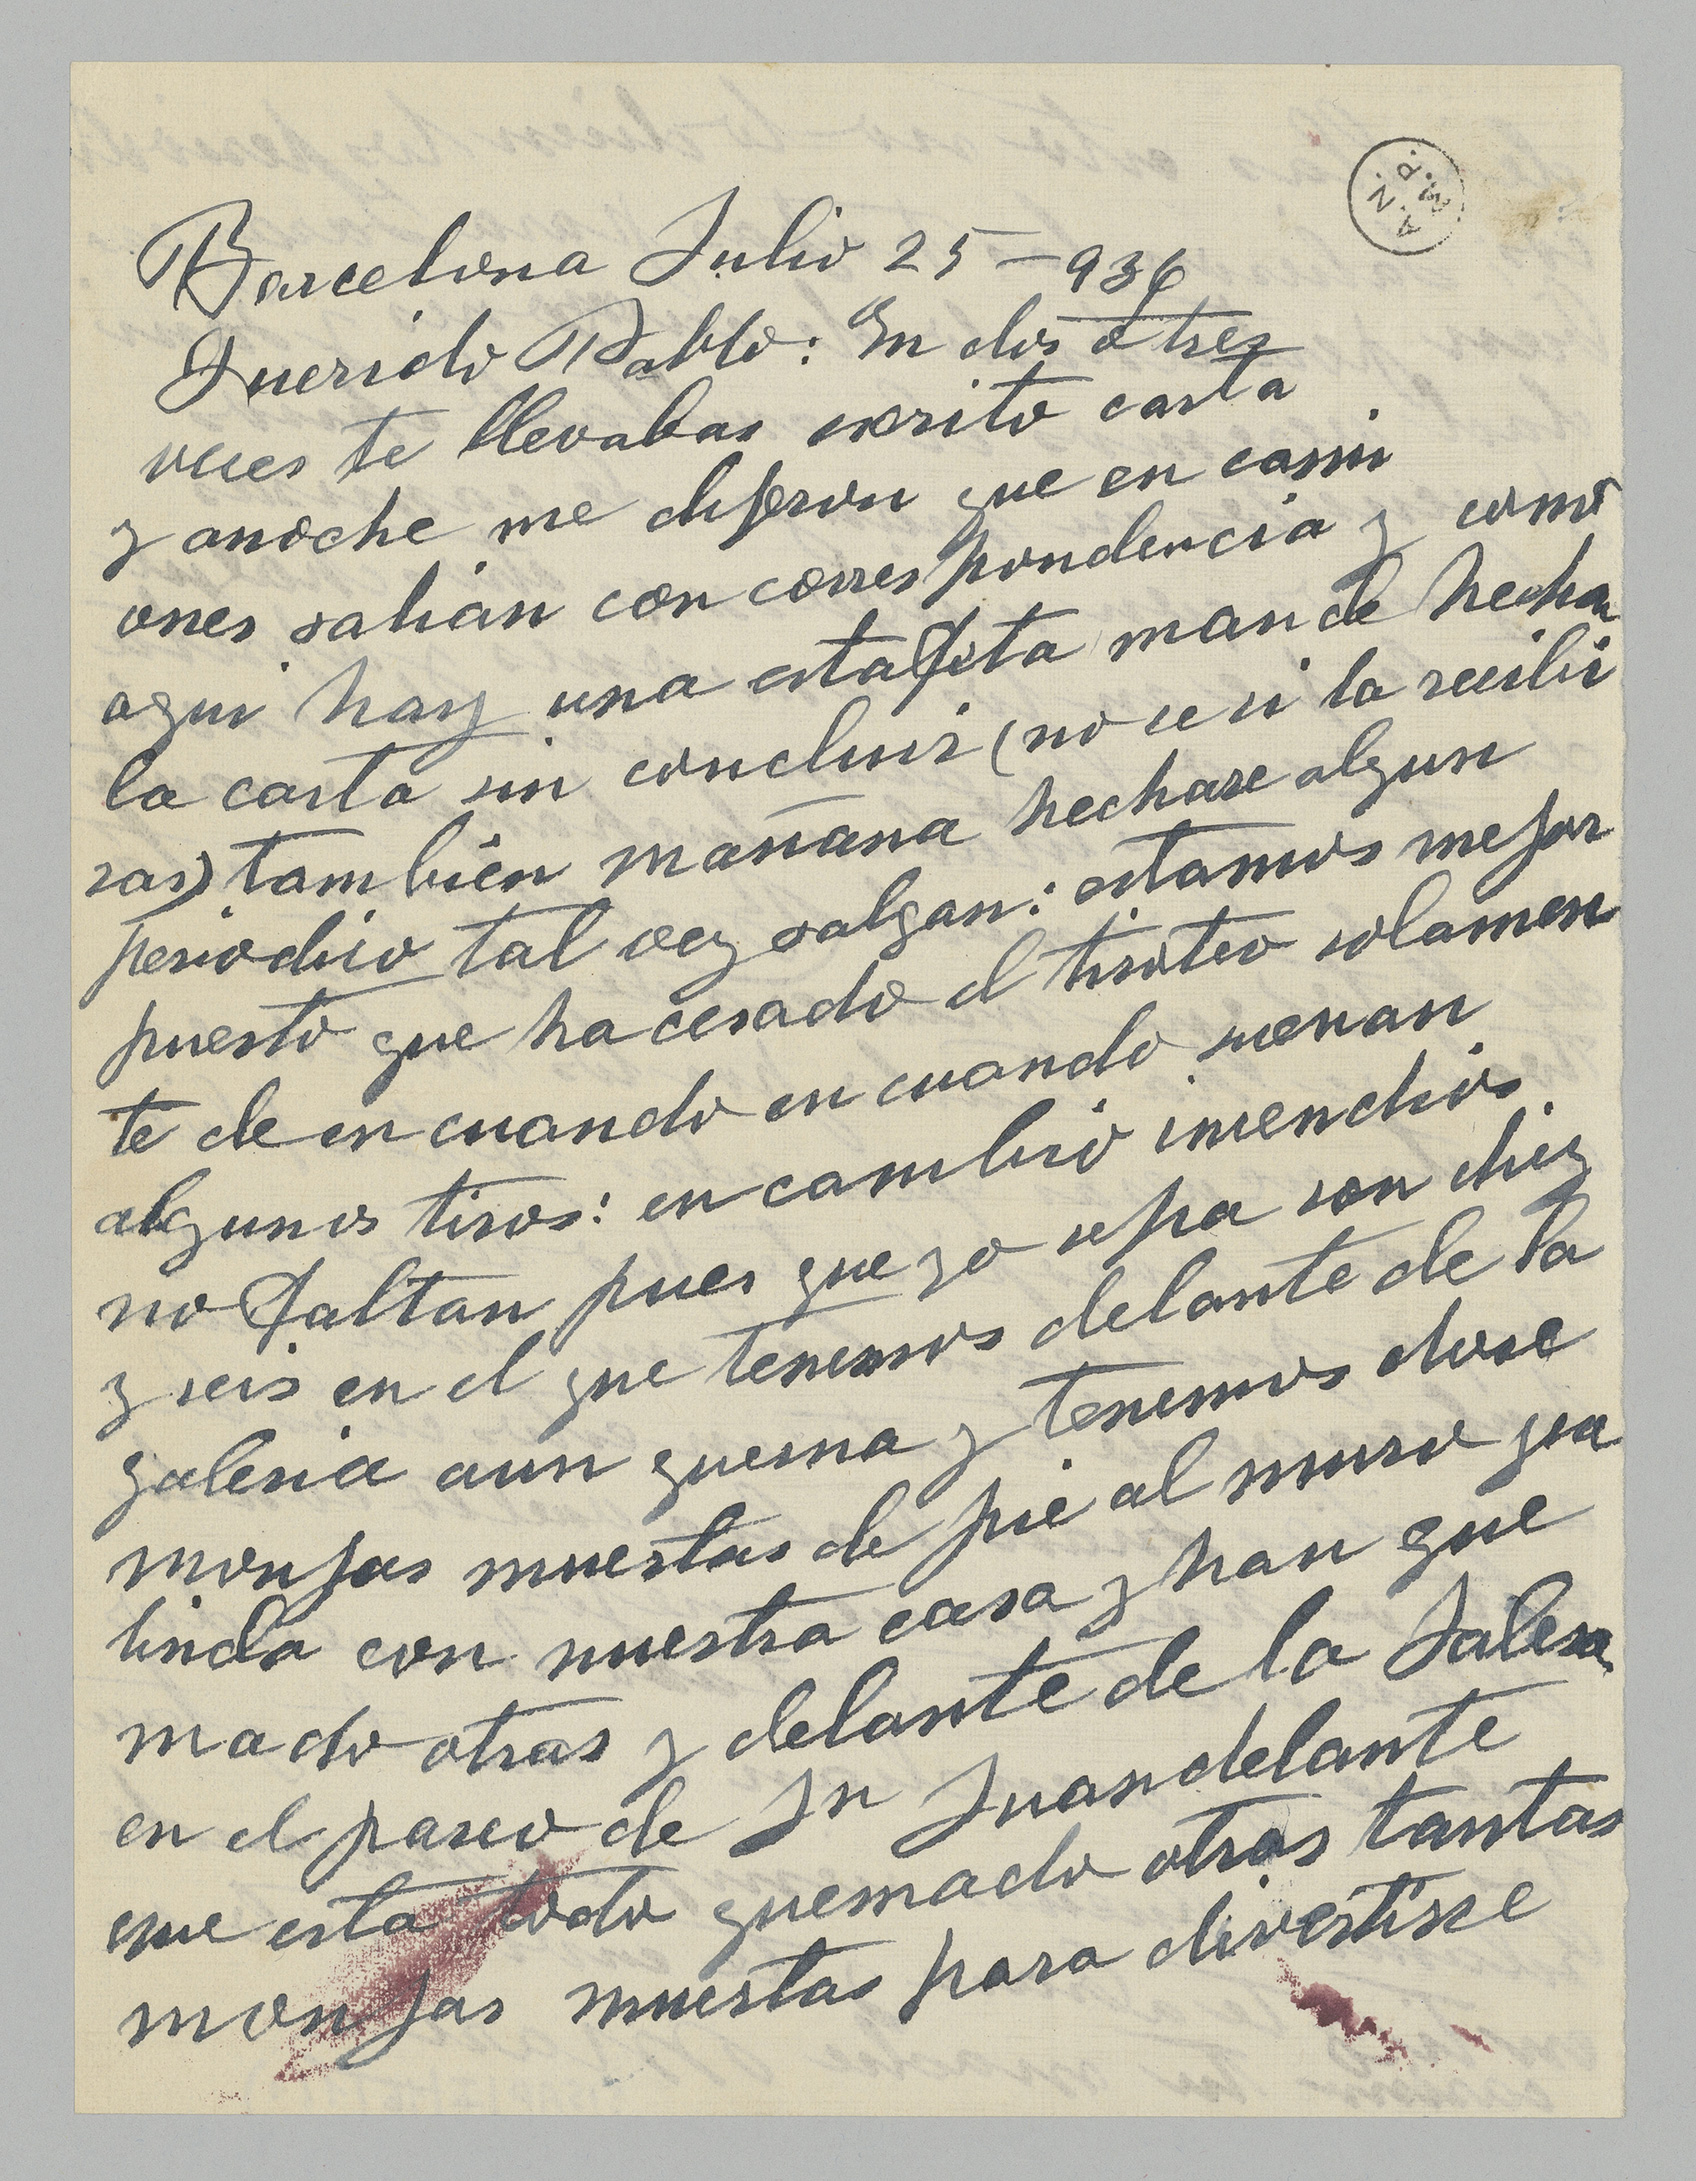 M.P.N.A.
Barcelona Julio 25-936
Querido Pablo: En dos o tres
veces te llevabas escrito carta
y anoche me dijeron que en cami
ones salian con correspondencia y como
aqui hay una estafeta mande hechar
la carta sin concluir (no se si la recibi
ras) tambien mañana hechare algun
periodico tal vez salgan: estamos mejor
puesto que ha cesado el tiroteo solamen
te de en cuando en cuando suenan
algunos tiros: en cambio incendios
no faltan pues que yo sepa son diez
y seis en el que tenemos delante de la
galeria aun quema y tenemos dose
monjas muertas de pie al muro que
linda con nuestra casa y han que
mado otras y delante de la Salesa
en el paseo de Sn Juan delante
que esta todo quemado otras tantas
monjas muertas para divertirse